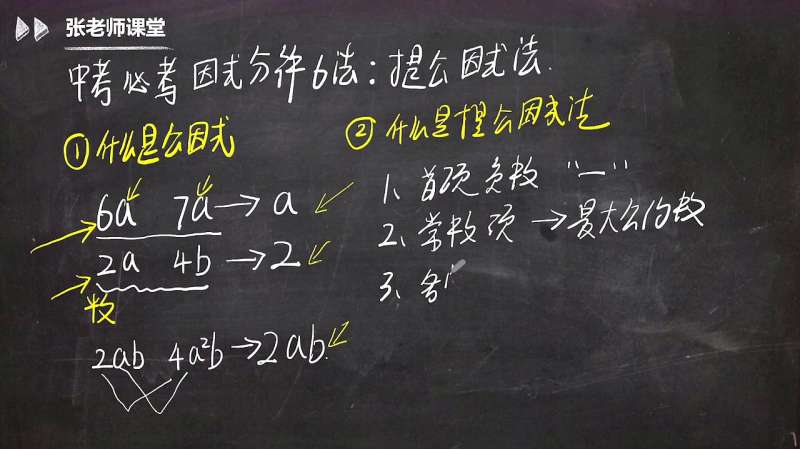 张老师课堂
中考必考因式分解6法：提公因式法.
①什么是公因式
6a 7a→a
2a 4b→2
数
2ab 4a²b→2ab.
②什么是提公因式法
1、首项负数 "—"
2、常数项→最大公约数
3、各